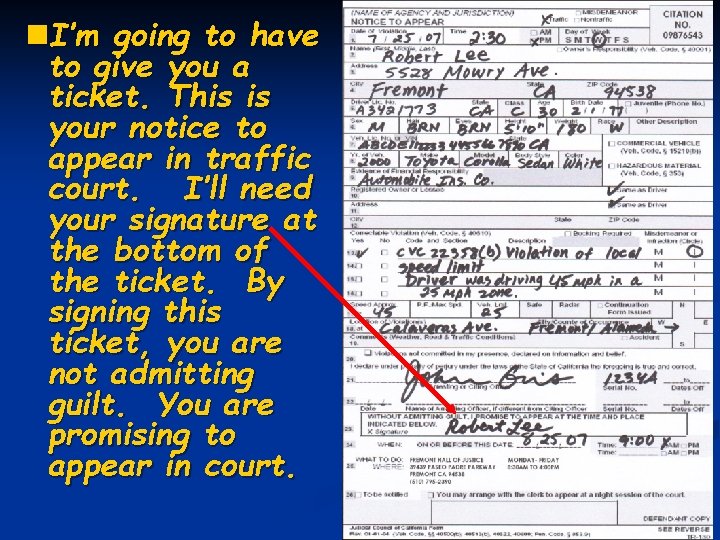 I'm going to have
to give you a
ticket. This is
your notice to
appear in traffic
court. I'll need
your signature at
the bottom of
the ticket. By
signing this
ticket, you are
not admitting
guilt. You are
promising to
appear in court.
(NAME OF AGENCY AND JURISDICTION) MISDEMEANOR CITATION NO.
NOTICE TO APPEAR X Traffic Nontraffic 09876543
Date of Violation Time AM PM Day of Week
7/25/07 2:30 S M T W T F S
Name (First, Middle, Last) Owner's Responsibility (Veh. Code, § 40001)
Robert Lee
Address
5528 Mowry Ave.
City State ZIP Code
Fremont CA 94538
Driver Lic. No. State Class Age Birth Date Juvenile (Phone No.)
A3421773 CA C 30 2/1/77
Sex Hair Eyes Height Weight Race Other Description
M BRN BRN 5'10" 180 W
COMMERCIAL VEHICLE
(Veh. Code, § 15210(b))
2000 Toyota Corolla Sedan White
HAZARDOUS MATERIAL
(Veh. Code, § 353)
Evidence of Financial Responsibility
Automobile Ins. Co.
Registered Owner or Lessee Same as Driver
Address Same as Driver
City State ZIP Code
Correctable Violation (Veh. Code, § 40610) Booking Required Misdemeanor or
Yes No Code and Section Description Infraction (Circle)
CVC 22358(b) Violation of local M I
speed limit M I
Driver was driving 45 mph in a M I
25 mph zone. M I
Speed Approx. P.F./Max Spd. Veh. Lmt. Safe Radar Continuation
Form Issued
45
Location of Violation(s)
at Calaveras Ave. Fremont/Alameda
Comments (Weather, Road & Traffic Conditions) Accident
Violations not committed in my presence, declared on information and belief.
I declare under penalty of perjury under the laws of the State of California the foregoing is true and correct.
1234A
Arresting or Citing Officer Serial No. Dates Off
Date Name of Arresting Officer, if different from Citing Officer Serial No. Dates Off
WITHOUT ADMITTING GUILT, I PROMISE TO APPEAR AT THE TIME AND PLACE
INDICATED BELOW.
X Signature Robert Lee
WHEN: ON OR BEFORE THIS DATE: 8/25/07 Time: 9:00 AM PM
WHAT TO DO: FREMONT HALL OF JUSTICE MONDAY-FRIDAY
WHERE: 39439 PASEO PADRE PARKWAY 8:30AM TO 4:00PM
FREMONT CA 94538
(510) 795-2390
To be notified You may arrange with the clerk to appear at a night session of the court.
DEFENDANT COPY
Judicial Council of California Form SEE REVERSE
TR-130